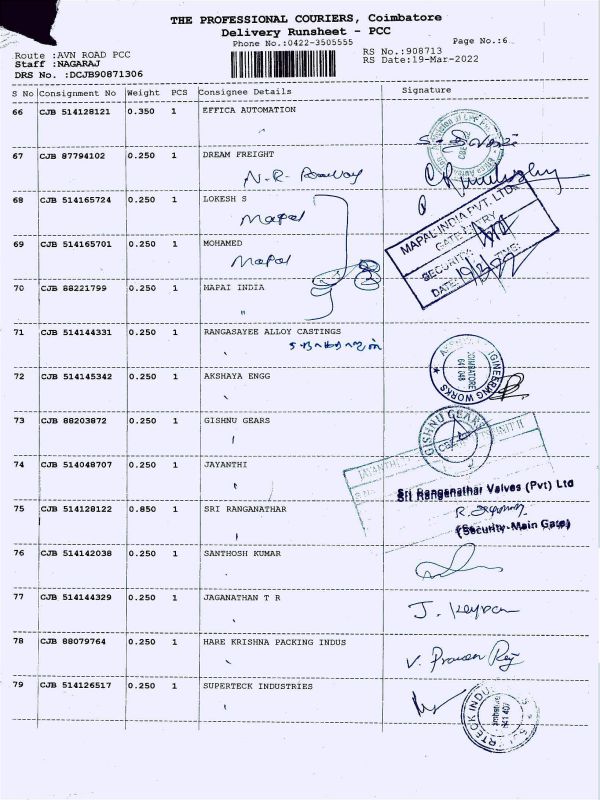 THE PROFESSIONAL COURIERS, Coimbatore
Delivery Runsheet - PCC
Phone No.:0422-3505555
Page No.:6
Route :AVN ROAD PCC
RS No.:908713
Staff :NAGARAJ
RS Date:19-Mar-2022
DRS No. :DCJB90871306
S No Consignment No Weight PCS Consignee Details Signature
66 CJB 514128121 0.350 1 EFFICA AUTOMATION
67 CJB 87794102 0.250 1 DREAM FREIGHT
68 CJB 514165724 0.250 1 LOKESH S
Mapal
MAPAL INDIA PVT. LTD.
GATE ENTRY
SECURITY:
DATE: 19/3/22 TIME:
69 CJB 514165701 0.250 1 MOHAMED
Mapal
70 CJB 88221799 0.250 1 MAPAI INDIA
"
71 CJB 514144331 0.250 1 RANGASAYEE ALLOY CASTINGS
72 CJB 514145342 0.250 1 AKSHAYA ENGG
ENGINEERING WORKS
COIMBATORE
641 048
73 CJB 88203872 0.250 1 GISHNU GEARS
GISHNU GEARS
74 CJB 514048707 0.250 1 JAYANTHI
JAYANTHI
UNIT II
Sri Ranganathar Valves (Pvt) Ltd
75 CJB 514128122 0.850 1 SRI RANGANATHAR
(Security-Main Gate)
76 CJB 514142038 0.250 1 SANTHOSH KUMAR
77 CJB 514144329 0.250 1 JAGANATHAN T R
78 CJB 88079764 0.250 1 HARE KRISHNA PACKING INDUS
V. Praveen Raj
79 CJB 514126517 0.250 1 SUPERTECK INDUSTRIES